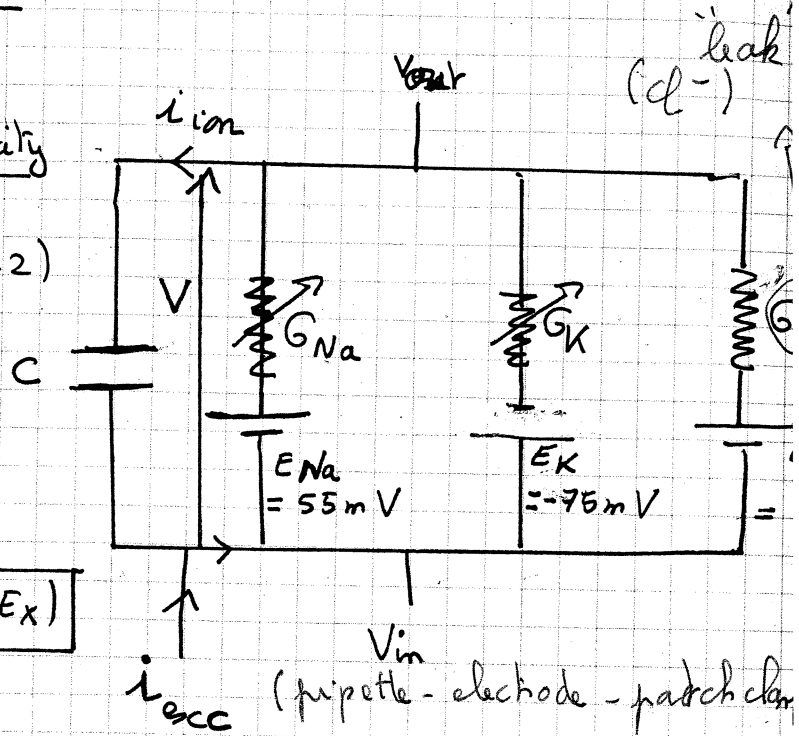 "leak"
(Cl-)
Vout
i ion
2)
V
G Na
G K
G
C
E Na
= 55 mV
E K
= -75 mV
=
Ex)
Vin
i exc
(pipette - electrode - patch clam